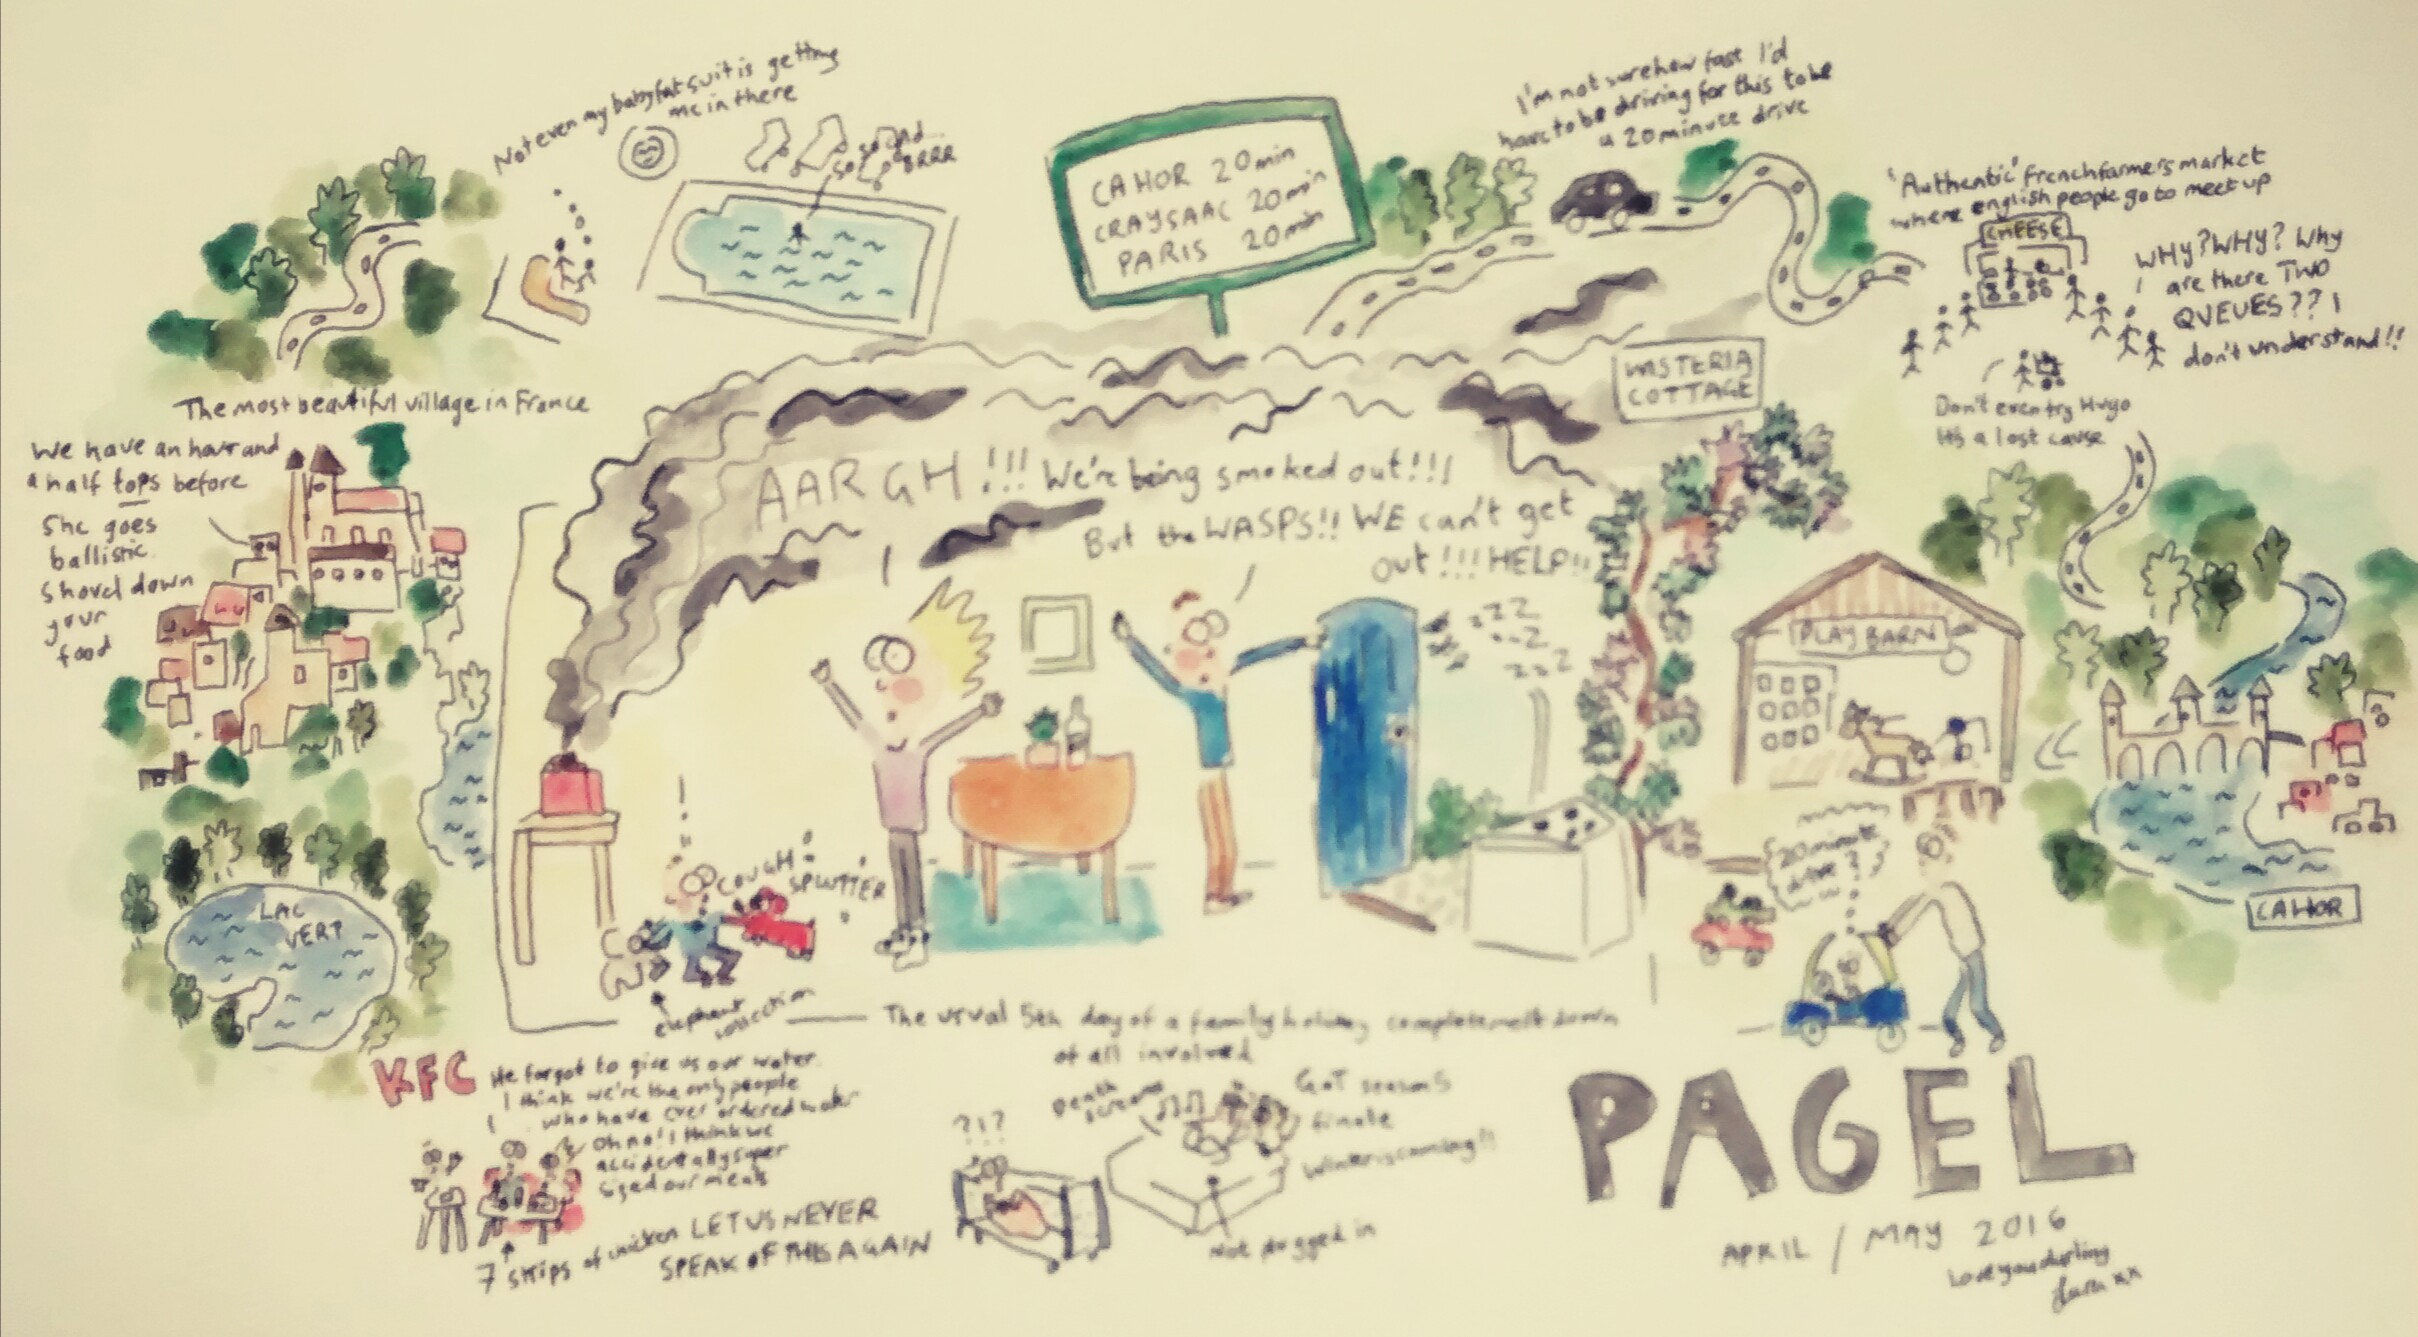 Not even my baby fat suit is getting
me in there
So so cold
BRRR
CAHOR 20min
CRAYSAAC 20min
PARIS 20min
I'm not sure how fast I'd
have to be driving for this to be
a 20 minute drive
'Authentic' french farmers market
where english people go to meet up
CHEESE
WHY? WHY? Why
are there TWO
QUEUES?? I
don't understand!!
Don't even try Hugo
Its a lost cause
The most beautiful village in France
We have an hour and
a half tops before
She goes
ballistic.
Shovel down
your
food
WISTERIA
COTTAGE
AARGH!!! We're being smoked out!!!
But the WASPS!! WE can't get
out!!! HELP!!
ZZZ
ZZ
ZZZ
PLAY BARN
20 minute
drive?
CAHOR
LAC
VERT
COUGH
SPLUTTER
elephant
The usual 5th day of a family holiday complete melt down
of all involved
KFC
He forgot to give us our water.
I think we're the only people
who have ever ordered water
Oh no! I think we
accidentally super
sized our meals
7 strips of chicken LET US NEVER
SPEAK OF THIS AGAIN
?!?
Death
screams
GoT season 5
finale
Winter is coming!!
Not plugged in
PAGEL
APRIL / MAY 2016
Love you darling
xx